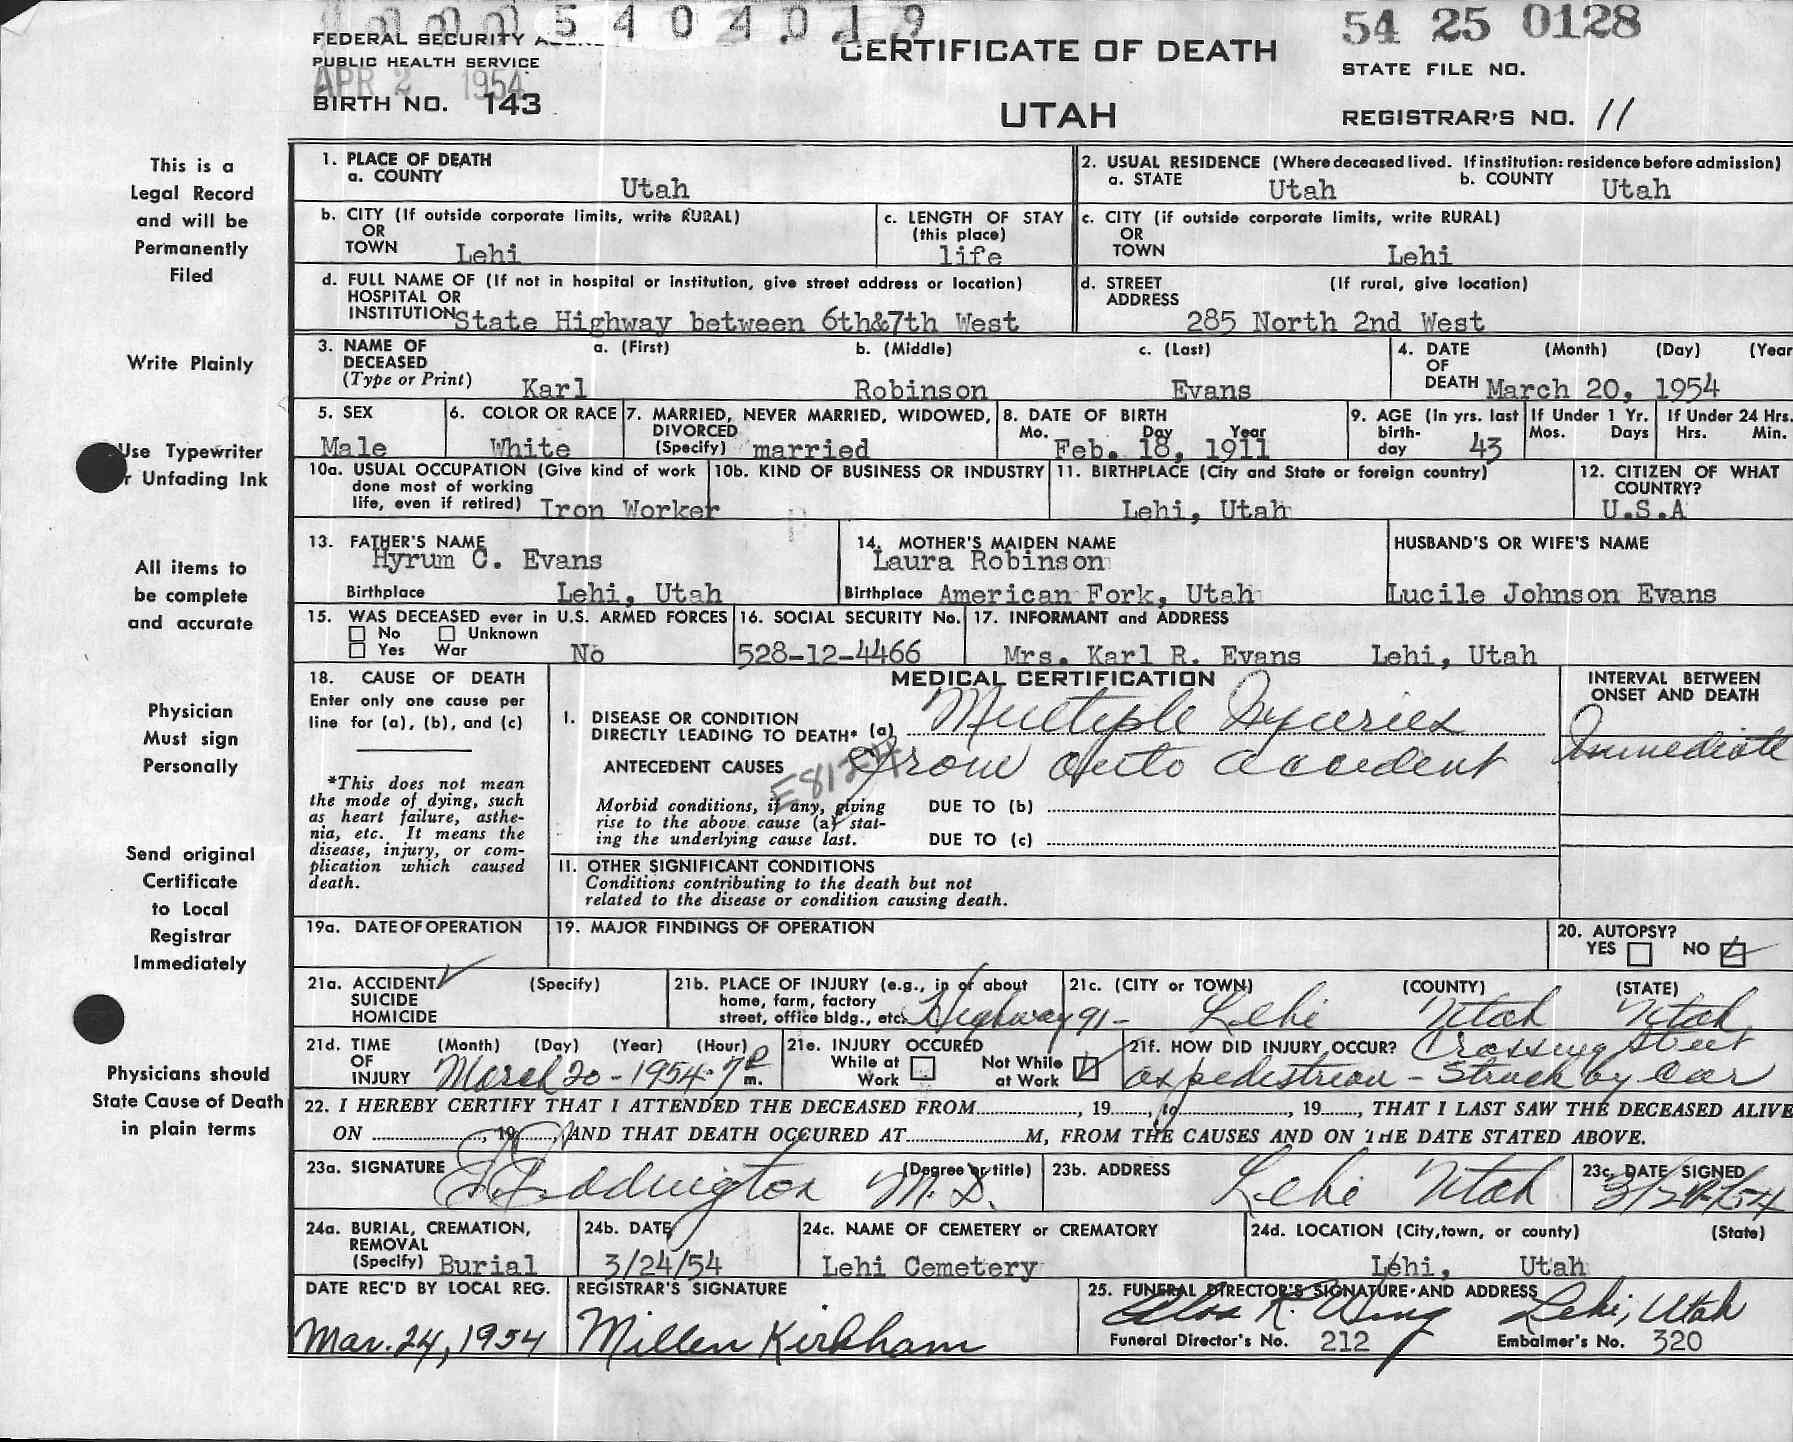 5404019
54 25 0128
FEDERAL SECURITY
CERTIFICATE OF DEATH
STATE FILE NO.
PUBLIC HEALTH SERVICE
APR 2 1954
BIRTH NO. 143
UTAH
REGISTRAR'S NO. 11
This is a
Legal Record
and will be
Permanently
Filed
Write Plainly
Use Typewriter
r Unfading Ink
All items to
be complete
and accurate
Physician
Must sign
Personally
Send original
Certificate
to Local
Registrar
Immediately
Physicians should
State Cause of Death
in plain terms
1. PLACE OF DEATH
a. COUNTY Utah
2. USUAL RESIDENCE (Where deceased lived. If institution: residence before admission)
a. STATE Utah b. COUNTY Utah
b. CITY (If outside corporate limits, write RURAL)
OR
TOWN Lehi
c. LENGTH OF STAY
(this place)
life
c. CITY (if outside corporate limits, write RURAL)
OR
TOWN Lehi
d. FULL NAME OF (If not in hospital or institution, give street address or location)
HOSPITAL OR
INSTITUTION State Highway between 6th&7th West
d. STREET (If rural, give location)
ADDRESS
285 North 2nd West
3. NAME OF DECEASED
(Type or Print)
a. (First) b. (Middle) c. (Last)
Karl Robinson Evans
4. DATE (Month) (Day) (Year
OF
DEATH March 20, 1954
5. SEX
Male
6. COLOR OR RACE
White
7. MARRIED, NEVER MARRIED, WIDOWED,
DIVORCED
(Specify) married
8. DATE OF BIRTH
Mo. Day Year
Feb. 18, 1911
9. AGE (In yrs. last
birth-
day 43
If Under 1 Yr.
Mos. Days
If Under 24 Hrs.
Hrs. Min.
10a. USUAL OCCUPATION (Give kind of work
done most of working
life, even if retired) Iron Worker
10b. KIND OF BUSINESS OR INDUSTRY
11. BIRTHPLACE (City and State or foreign country)
Lehi, Utah
12. CITIZEN OF WHAT
COUNTRY?
U.S.A
13. FATHER'S NAME
Hyrum C. Evans
Birthplace Lehi, Utah
14. MOTHER'S MAIDEN NAME
Laura Robinson
Birthplace American Fork, Utah
HUSBAND'S OR WIFE'S NAME
Lucile Johnson Evans
15. WAS DECEASED ever in U.S. ARMED FORCES
No Unknown
Yes War No
16. SOCIAL SECURITY No.
528-12-4466
17. INFORMANT and ADDRESS
Mrs. Karl R. Evans Lehi, Utah
18. CAUSE OF DEATH
Enter only one cause per
line for (a), (b), and (c)
*This does not mean
the mode of dying, such
as heart failure, asthe-
nia, etc. It means the
disease, injury, or com-
plication which caused
death.
MEDICAL CERTIFICATION
I. DISEASE OR CONDITION
DIRECTLY LEADING TO DEATH* (a) Multiple Injuries
ANTECEDENT CAUSES From Auto accident
Morbid conditions, if any, giving
rise to the above cause (a) stat-
ing the underlying cause last.
DUE TO (b)
DUE TO (c)
II. OTHER SIGNIFICANT CONDITIONS
Conditions contributing to the death but not
related to the disease or condition causing death.
INTERVAL BETWEEN
ONSET AND DEATH
Immediate
19a. DATE OF OPERATION
19. MAJOR FINDINGS OF OPERATION
20. AUTOPSY?
YES NO
21a. ACCIDENT (Specify)
SUICIDE
HOMICIDE
21b. PLACE OF INJURY (e.g., in or about
home, farm, factory
street, office bldg., etc. Highway 91-
21c. (CITY or TOWN) (COUNTY) (STATE)
Lehi Utah Utah
21d. TIME (Month) (Day) (Year) (Hour)
OF
INJURY March 20-1954-7 P m.
21e. INJURY OCCURED
While at Work
Not While at Work
21f. HOW DID INJURY OCCUR? Crossing Street
as pedestrian - Struck by Car
22. I HEREBY CERTIFY THAT I ATTENDED THE DECEASED FROM , 19 , to , 19 , THAT I LAST SAW THE DECEASED ALIVE
ON , 19 , AND THAT DEATH OCCURED AT M, FROM THE CAUSES AND ON THE DATE STATED ABOVE.
23a. SIGNATURE (Degree or title)
Eddington M.D.
23b. ADDRESS
Lehi Utah
23c. DATE SIGNED
24a. BURIAL, CREMATION,
REMOVAL
(Specify) Burial
24b. DATE
3/24/54
24c. NAME OF CEMETERY or CREMATORY
Lehi Cemetery
24d. LOCATION (City, town, or county) (State)
Lehi, Utah
DATE REC'D BY LOCAL REG.
Mar. 24, 1954
REGISTRAR'S SIGNATURE
Millen Kirkham
25. FUNERAL DIRECTOR'S SIGNATURE AND ADDRESS
R. Wing Lehi, Utah
Funeral Director's No. 212 Embalmer's No. 320